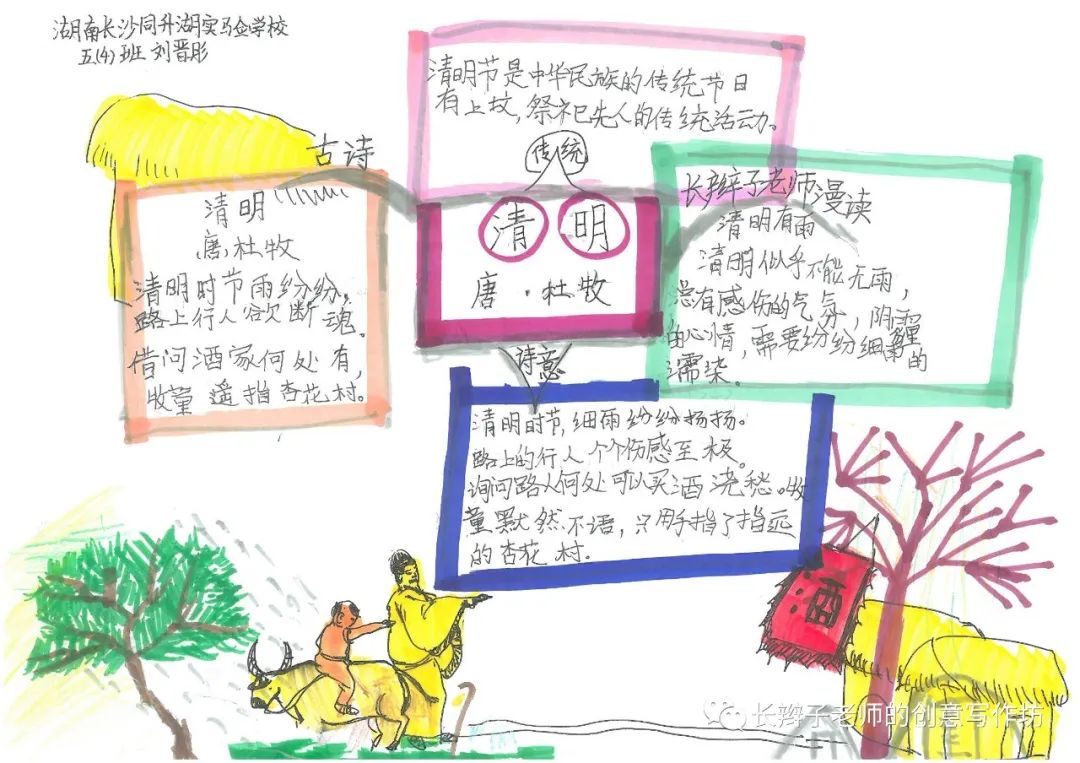 湖南长沙同升湖实验学校
五(4)班 刘晋彤
清明节是中华民族的传统节日
有上坟，祭祀先人的传统活动。
传统
古诗
清明
唐，杜牧
清明时节雨纷纷，
路上行人欲断魂。
借问酒家何处有，
牧童遥指杏花村。
清明
唐·杜牧
长辫子老师漫读
清明有雨
清明似乎不能无雨，
总有感伤的气氛，阴霾
的心情，需要纷纷细雨的
濡染。
诗意
清明时节，细雨纷纷扬扬。
路上的行人个个伤感至极。
询问路人何处可以买酒浇愁。牧
童默然不语，只用手指了指远
的杏花村。
酒
长辫子老师的创意写作坊